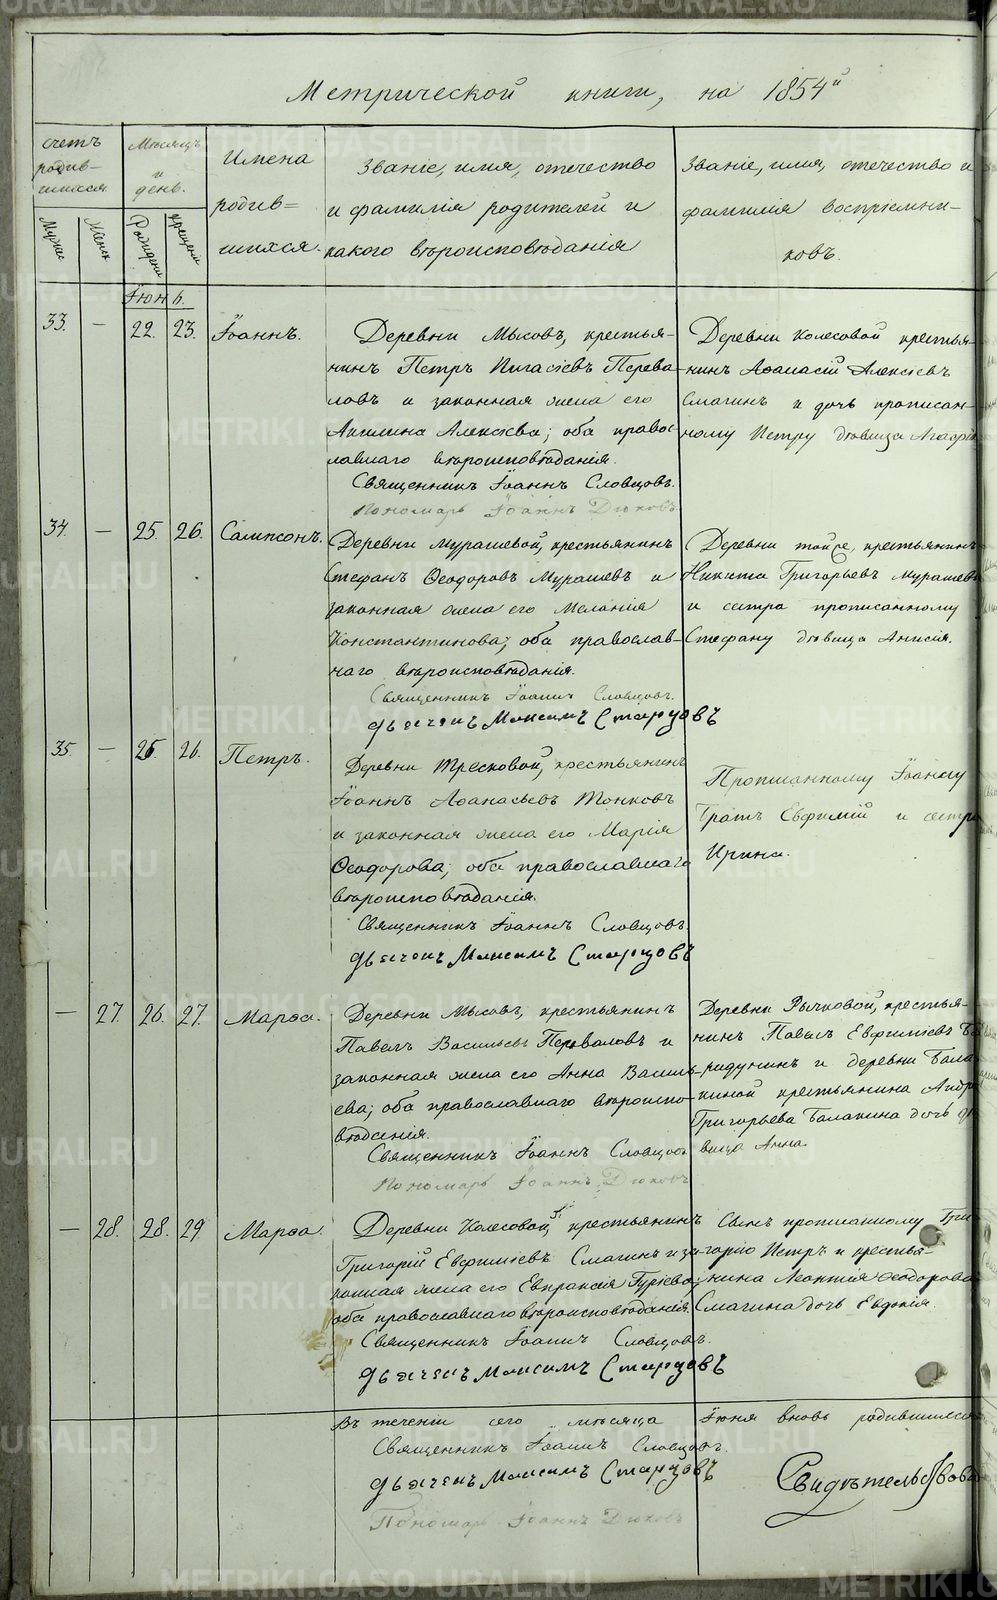 Метрической книги, на 1854й
Счетъ родив-шихся
Мужск
Женск
Мѣсяцъ и день.
Рожденія
Крещенія
Имена родив=шихся.
Званіе, имя, отечество
и фамилія родителей и
какого вѣроисповѣданія
Званіе, имя, отечество и
фамилія воспріемни-
ковъ.
Іюнь.
33. — 22. 23. Іоаннъ.
Деревни Мысовъ, крестья-
нинъ Петръ Пигасіевъ Перева-
ловъ и законная жена его
Акилина Алексіева; оба право-
славнаго вѣроисповѣданія.
Священникъ Іоаннъ Словцовъ.
Пономарь Іоаннъ Дюковъ
Деревни Колесовой крестья-
нинъ Аѳанасій Алексіевъ
Смагинъ и дочь прописан-
ному Петру дѣвица Агафія
34. — 25. 26. Сампсонъ.
Деревни Мурашевой, крестьянинъ
Стефанъ Ѳеодоровъ Мурашевъ и
законная жена его Меланія
Константинова; оба православ-
наго вѣроисповѣданія.
Священникъ Іоаннъ Словцовъ.
Дьячекъ Максимъ Старцовъ
Деревни тойже, крестьянинъ
Никита Григорьевъ Мурашевъ
и сестра прописанному
Стефану дѣвица Анисія.
35. — 25. 26. Петръ.
Деревни Тресковой, крестьянинъ
Іоаннъ Аѳанасьевъ Тонковъ
и законная жена его Марія
Ѳеодорова; оба православнаго
вѣроисповѣданія.
Священникъ Іоаннъ Словцовъ.
Дьячекъ Максимъ Старцовъ
Прописанному Іоанну
братъ Евфимій и сестра
Ирина.
— 27. 26. 27. Марѳа.
Деревни Мысовъ, крестьянинъ
Павелъ Васильевъ Переваловъ и
законная жена его Анна Василь-
ева; оба православнаго вѣроиспо-
вѣданія.
Священникъ Іоаннъ Словцовъ
Пономарь Іоаннъ Дюковъ
Деревни Рычковой, крестья-
нинъ Павелъ Евфиміевъ
и деревни Бала-
киной крестьянина Андрея
Григорьева Балакина дочь дѣ-
вица Анна.
— 28. 28. 29 Марѳа.
Деревни Колесовой, крестьянинъ
Григорій Евфиміевъ Смагинъ и за-
конная жена его Евпраксія Гуріева;
оба православнаго вѣроисповѣданія.
Священникъ Іоаннъ Словцовъ.
Дьячекъ Максимъ Старцовъ
Сынъ прописанному Гри-
горію Петръ и крестья-
нина Леонтія Ѳеодорова
Смагина дочь Евдокія.
Въ теченіи сего мѣсяца Іюня вновь родившихся
Священникъ Іоаннъ Словцовъ.
Дьячекъ Максимъ Старцовъ
Пономарь Іоаннъ Дюковъ
METRIKI.GASO-URAL.RU